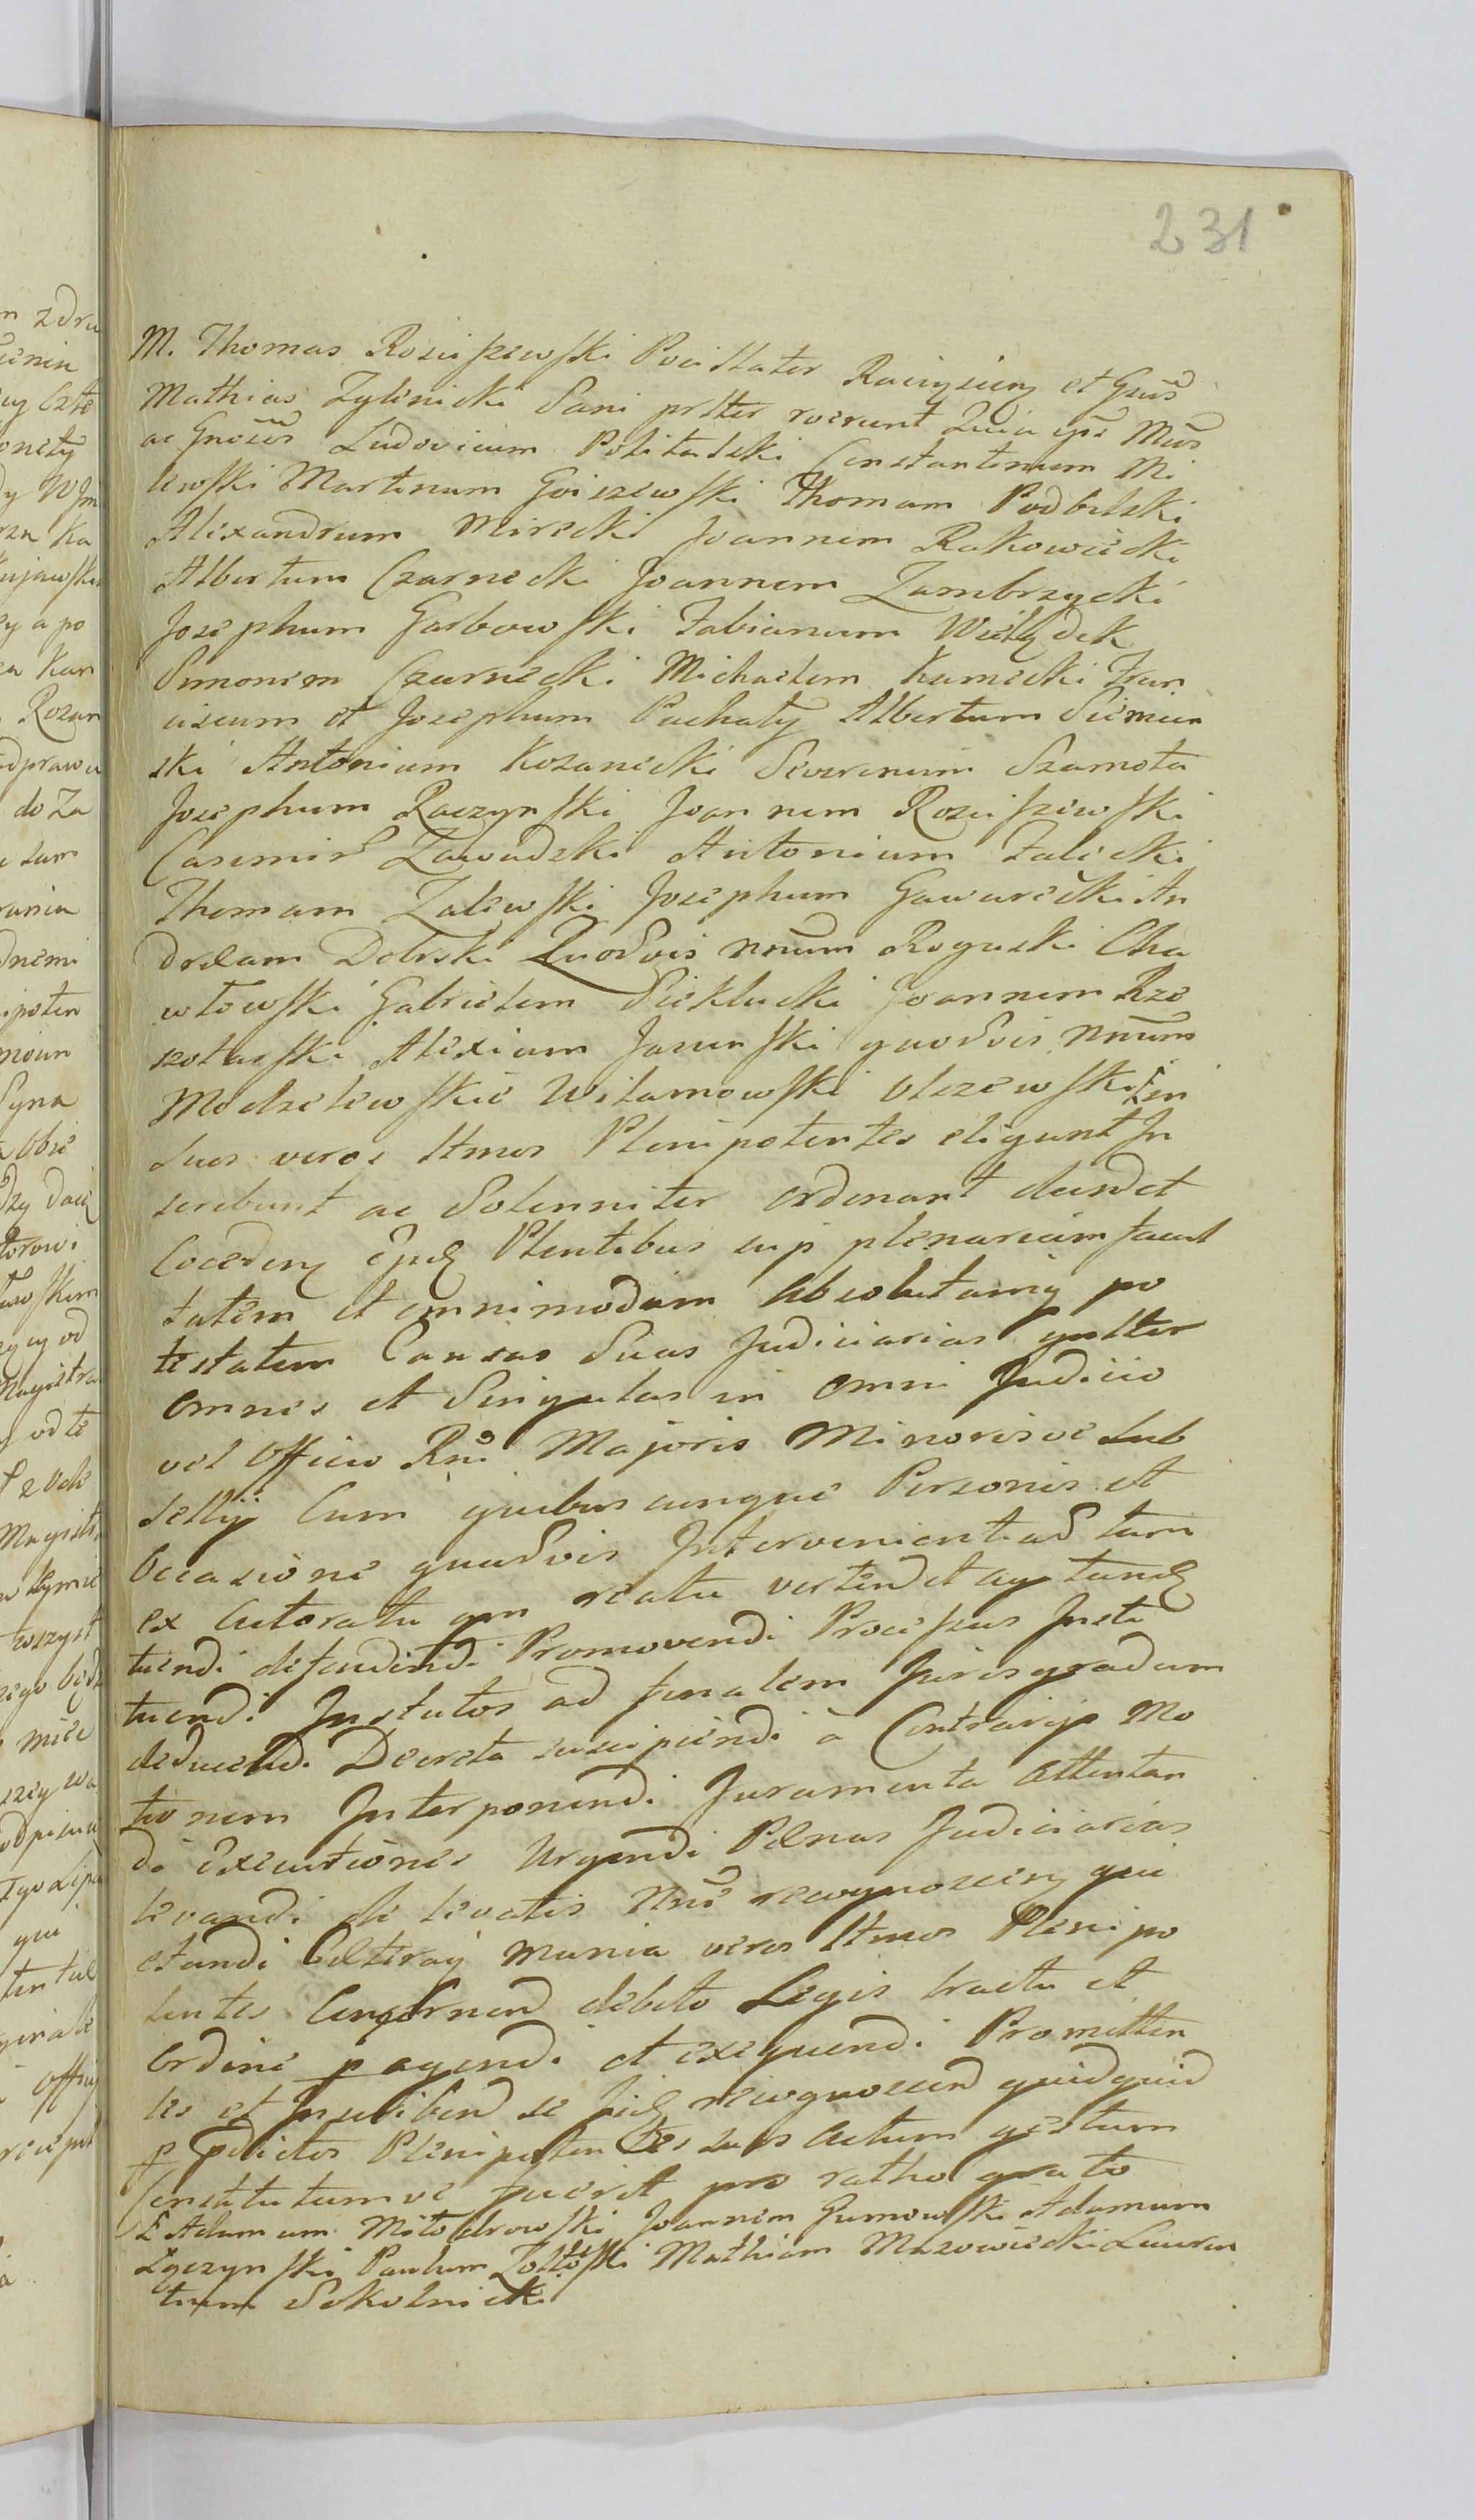 231
M. Thomas Rosciszewski Poczstator Raciąziens et Gnūs
Mathias Zylinicki Sani prstter roerunt Quia ipsi Mūos
ac Gnōsos Ludovicum Politalski Constantinum Mi
lewski Martinum Goiszewski Thomam Podbilski
Alexandrum Mirecki Joannem Rakowiecki
Albertum Czarnecki Joannem Zambrzycki
Josephum Garbowski Fabianum Wielądek
Simonem Czarnecki Michaelem Kamecki Fran
ciscum et Josephum Puchały Albertum Siemien
ski Antonium Kozanecki Severinum Szamota
Josephum Raczynski Joannem Rosciszewski
Casimir Zawadzki Antonium Zalicki
Thomam Zalewski Josephum Gawarecki An
dream Dobski Quodvis nnūm Roguski Cha
włowski Gabrielem Sieklucki Joannem Rze
szotarski Alexium Jasinski quodvis nnūm
Modzelewskie Wilamowski Olszewski in
Suos veros Ltmos Plenipotentes eligunt In
scribunt ac Solenniter ordinant dand et
Coceden ejusq Plentibus suis plenariam facul
tatem et omnimodam Absolutamq po
testatem Causas Suas Judiciarias gnltter
omnes et Singulas in omni Judicio
vel Officio Rni Majoris Minorisve Sub
sellij Cum quibuscunque Personis et
Occasione quadvis Intervenientiad tam
ex Actoratu qm reatu vertend et agitandq
tuendi defendendi Promovendi Processus Insti
tuendi Institutos ad finalem Juris gradum
deducendi Decreta suscipiendi à Contrarijs Mo
tionem Interponendi Juramenta attentan
di Executiones Urgendi Pœnas Judiciarias
levandi de levatis Nnē recognoscen qui
etandi Cæteraq munia veros Ltmos Plenipo
tentes Concernend debito Legis tractu et
Ordine pagendi et exequendi Promitten
tes et Inscribend se hicq recognoscend quidquid
p pdictos Plenipotentes suos Actum gestum
Constitutumve fuerit pro ratho grato
Adamum Młodzowski Joannem Gumowski Adamum
Łączynski Paulum Zołtowski Mathiam Mazowiecki Lauren
tium Sokolnicki